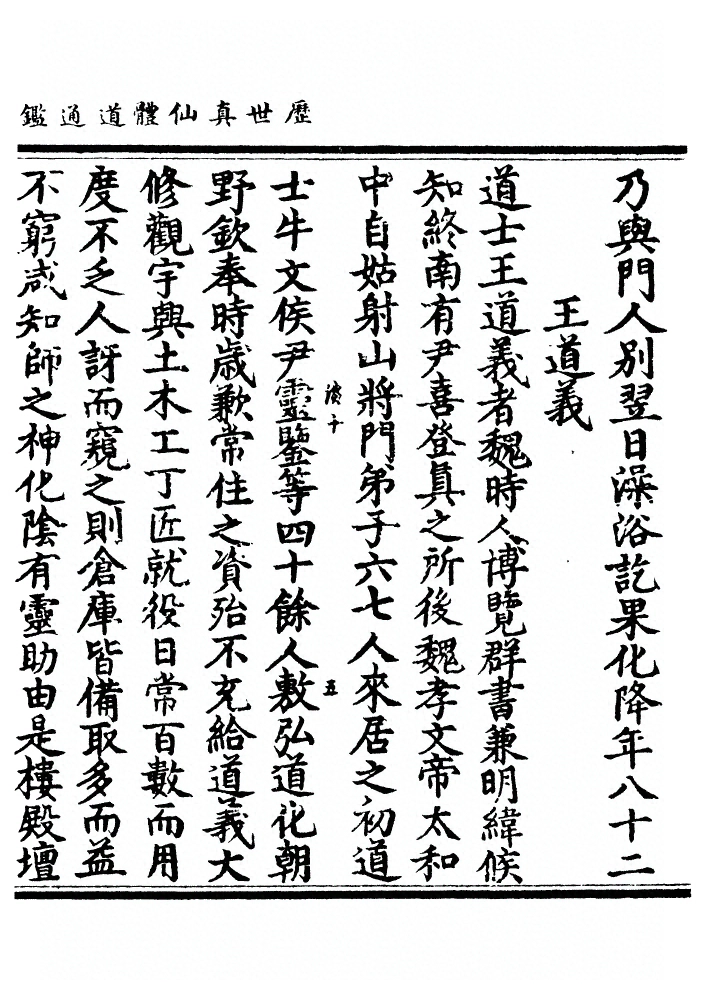 歷世真仙體道通鑑
乃與門人別翌日澡浴訖果化降年八十二
王道義
道士王道義者魏時人博覽群書兼明緯候
知終南有尹喜登真之所後魏孝文帝太和
中自姑射山將門弟子六七人來居之初道
士牛文侯尹靈鑒等四十餘人敷弘道化朝
野欽奉時歲歉常住之資殆不充給道義大
修觀宇興土木工丁匠就役日常百數而用
度不乏人訝而窺之則倉庫皆備取多而益
不窮咸知師之神化陰有靈助由是樓殿壇
五